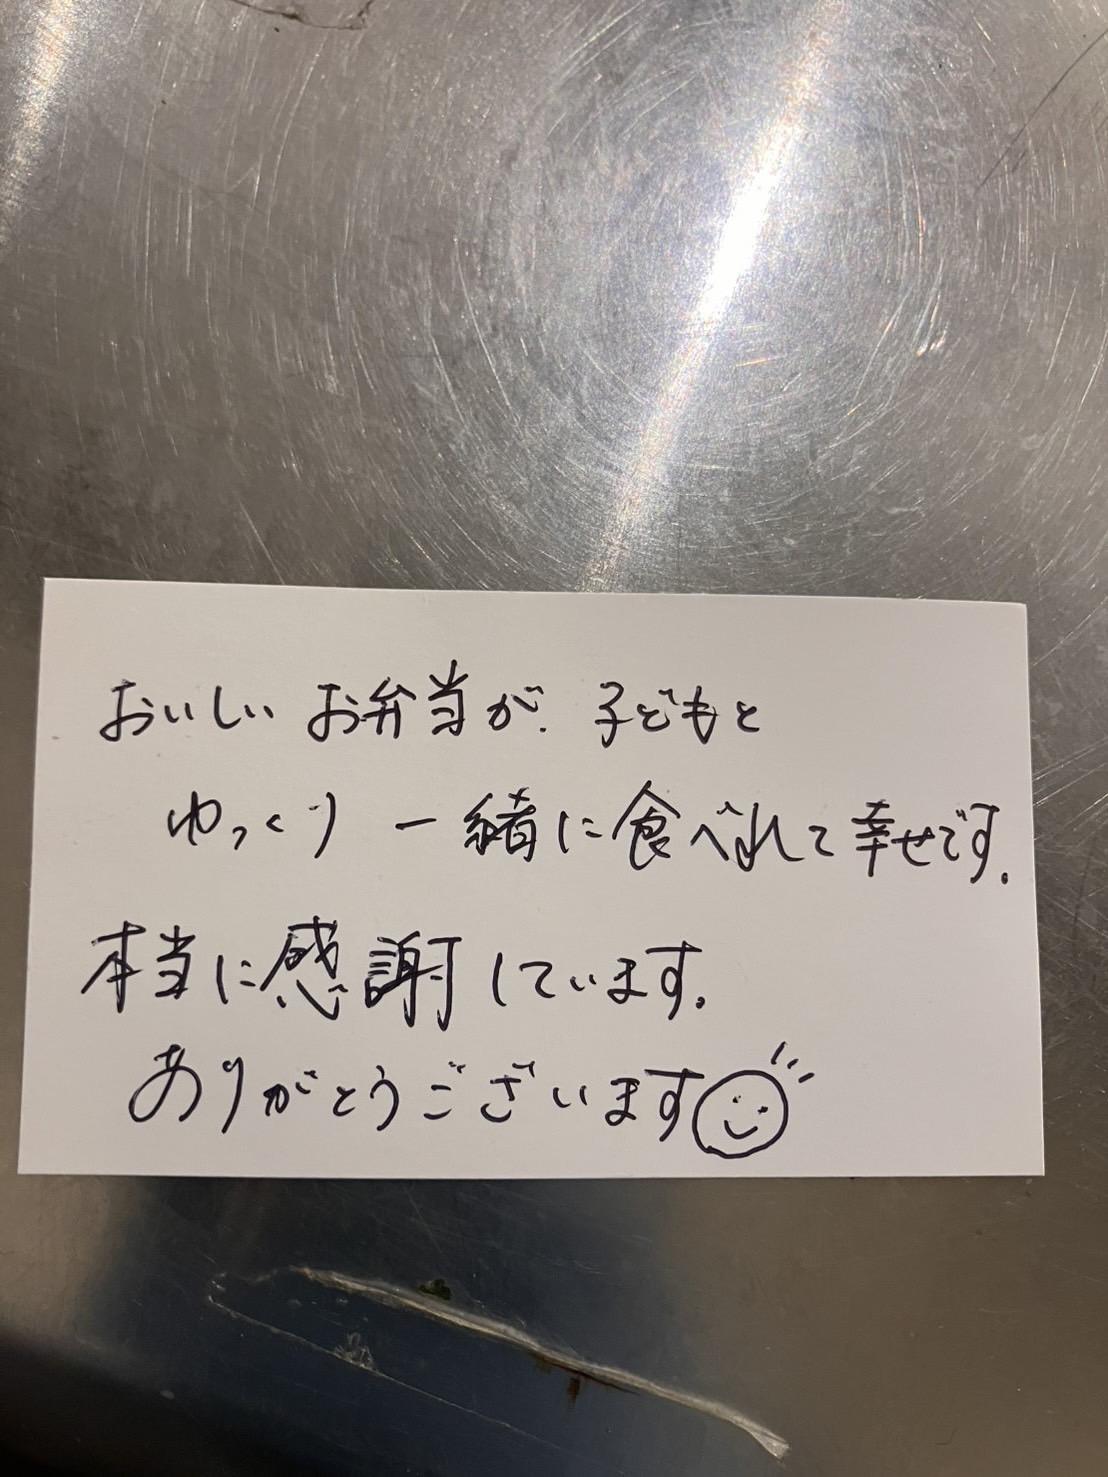 おいしい お弁当が. 子どもと
ゆっくり 一緒に食べれて幸せです.
本当に感謝しています.
ありがとうございます